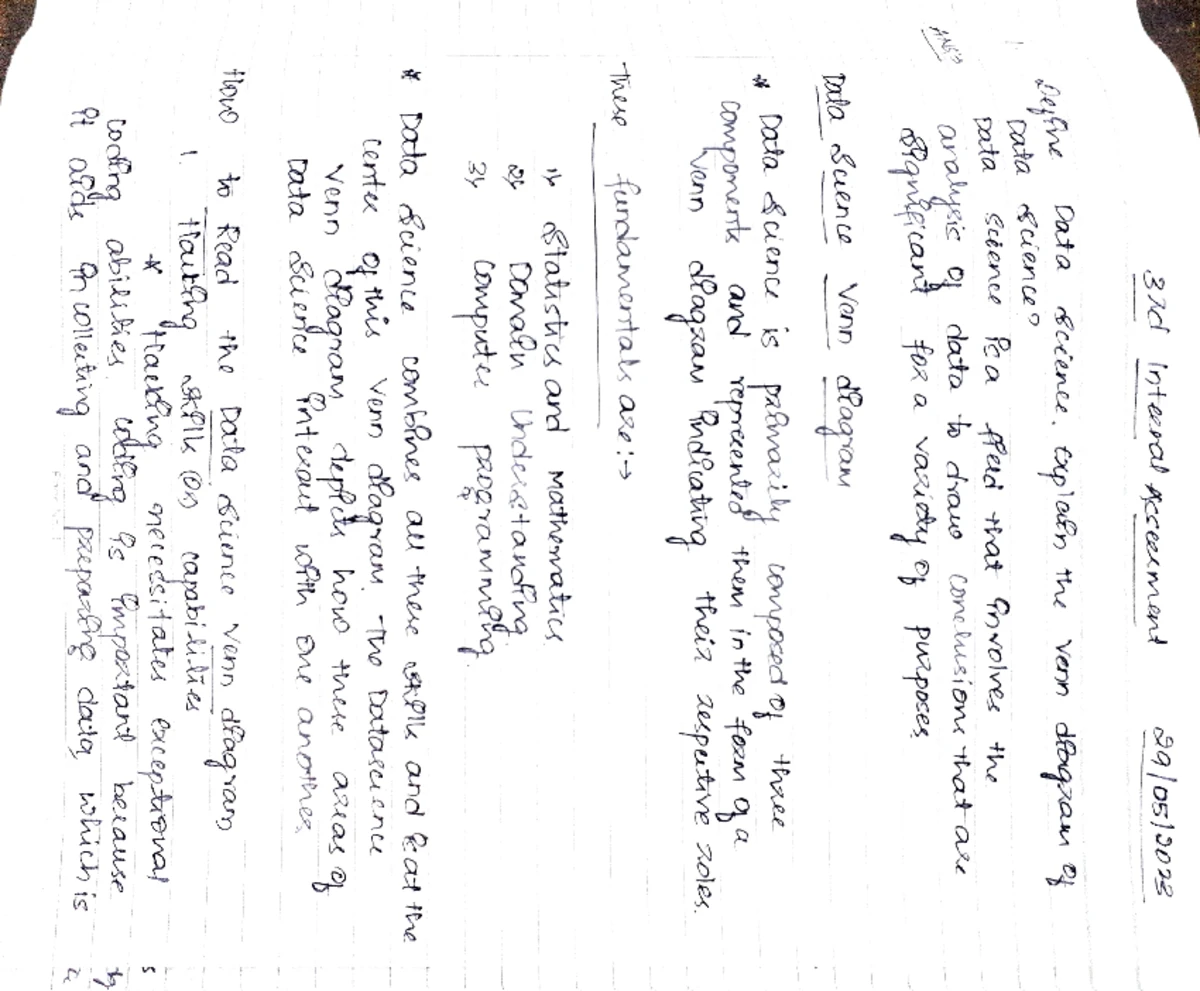 3rd Interal Assessment 29/05/2023
1.
Define Data Science. Explain the Venn diagram of
Data Science?
Ans?
Data science is a field that involves the
analysis of data to draw conclusions that are
significant for a variety of purposes.
Data Science Venn diagram
* Data Science is primarily composed of three
components and represented them in the form of a
Venn diagram indicating their respective roles.
These fundamentals are:→
1) Statistics and Mathematics
2) Domain Understanding
3) Computer programming.
* Data Science combines all these skills and is at the
center of this Venn diagram. The Datascience
Venn diagram depicts how these areas of
Data Science interact with one another.
How to Read the Data Science Venn diagram
1. Hacking skills (or) capabilities
* Hacking necessitates exceptional
coding abilities. coding is important because
it aids in collecting and preparing data, which is